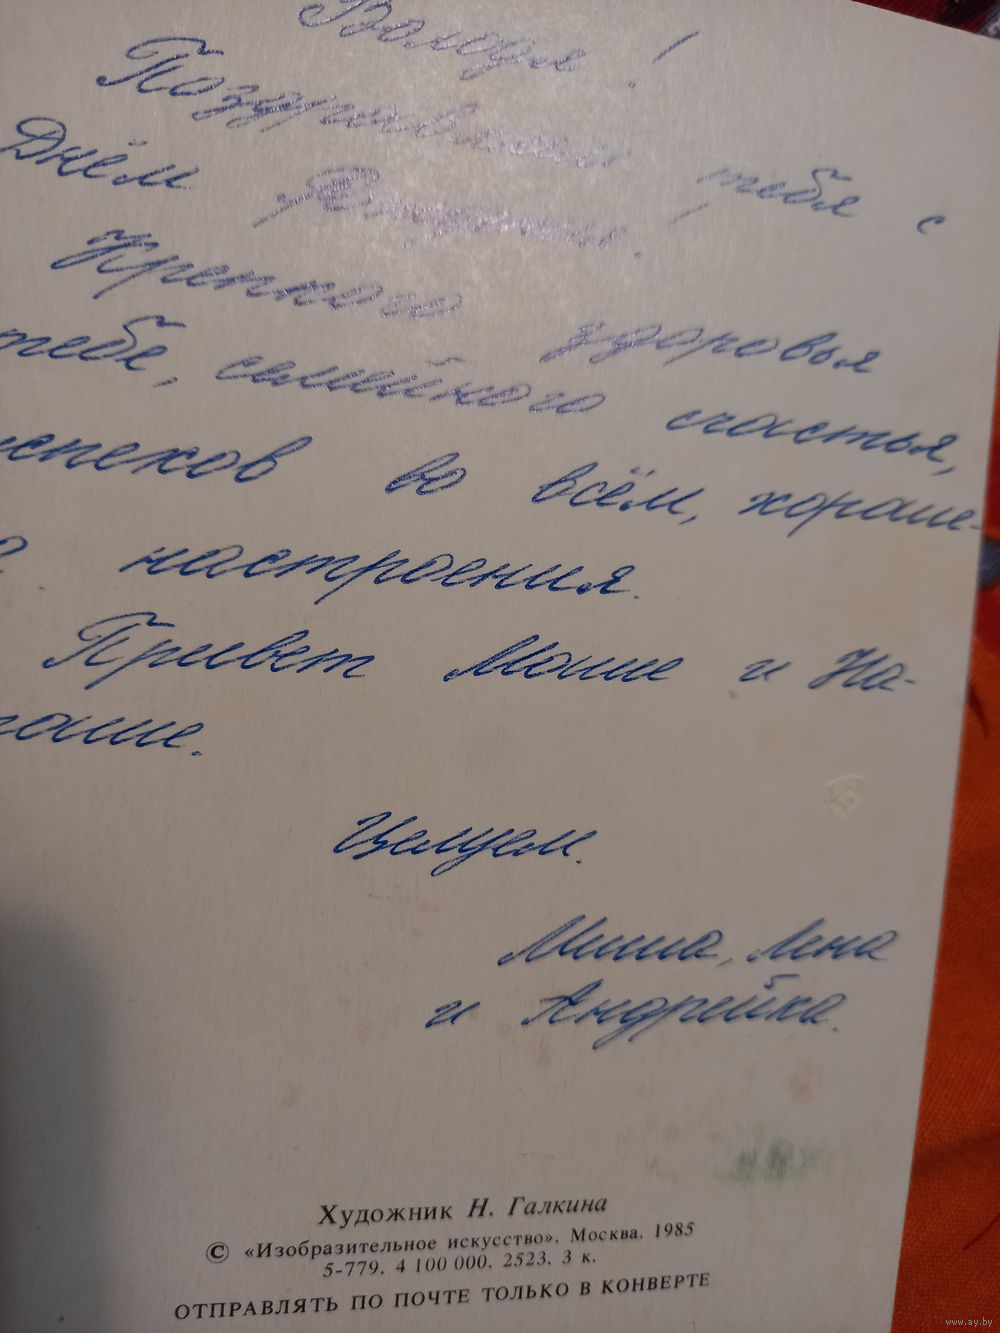 Володя!
Поздравляем тебя с
Днём Рождения.
Крепкого здоровья
тебе, семейного счастья,
успехов во всём, хороше-
го настроения.
Привет Маше и На-
таше.
Целуем.
Миша, Лена
и Андрейка.
Художник Н. Галкина
© «Изобразительное искусство». Москва. 1985
5-779. 4 100 000. 2523. 3 к.
ОТПРАВЛЯТЬ ПО ПОЧТЕ ТОЛЬКО В КОНВЕРТЕ
www.ay.by